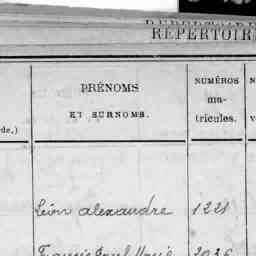 RÉPERTOIR
PRÉNOMS
ET SURNOMS.
NUMÉROS
ma-
tricules.
N
v
rde.)
Léon alexandre 1221
Francis Paul Marie 2036